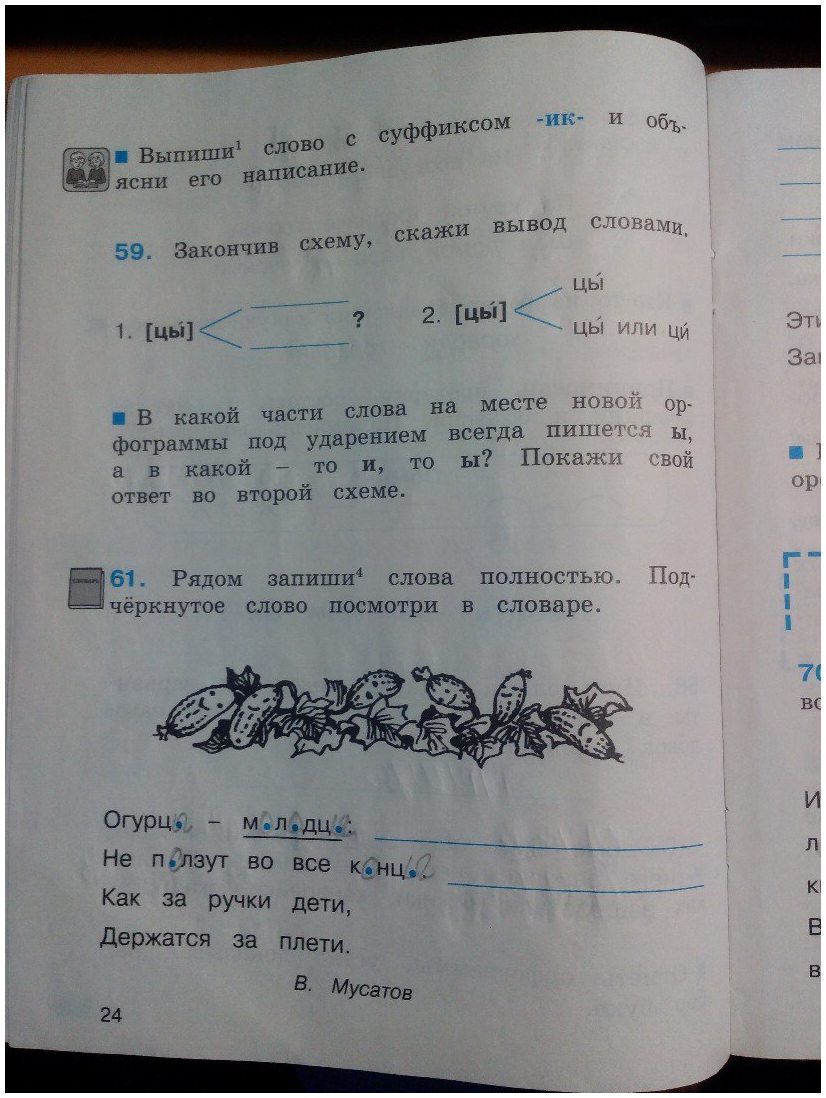 ■ Выпиши¹ слово с суффиксом -ик- и объ-
ясни его написание.
59. Закончив схему, скажи вывод словами.
1. [цы́] ?
2. [цы́] цы́
цы́ или ци́
■ В какой части слова на месте новой ор-
фограммы под ударением всегда пишется ы,
а в какой – то и, то ы? Покажи свой
ответ во второй схеме.
61. Рядом запиши⁴ слова полностью. Под-
чёркнутое слово посмотри в словаре.
Огурц. – м.л.дц.:
Не п.лзут во все к.нц..
Как за ручки дети,
Держатся за плети.
В. Мусатов
24
Эти
70